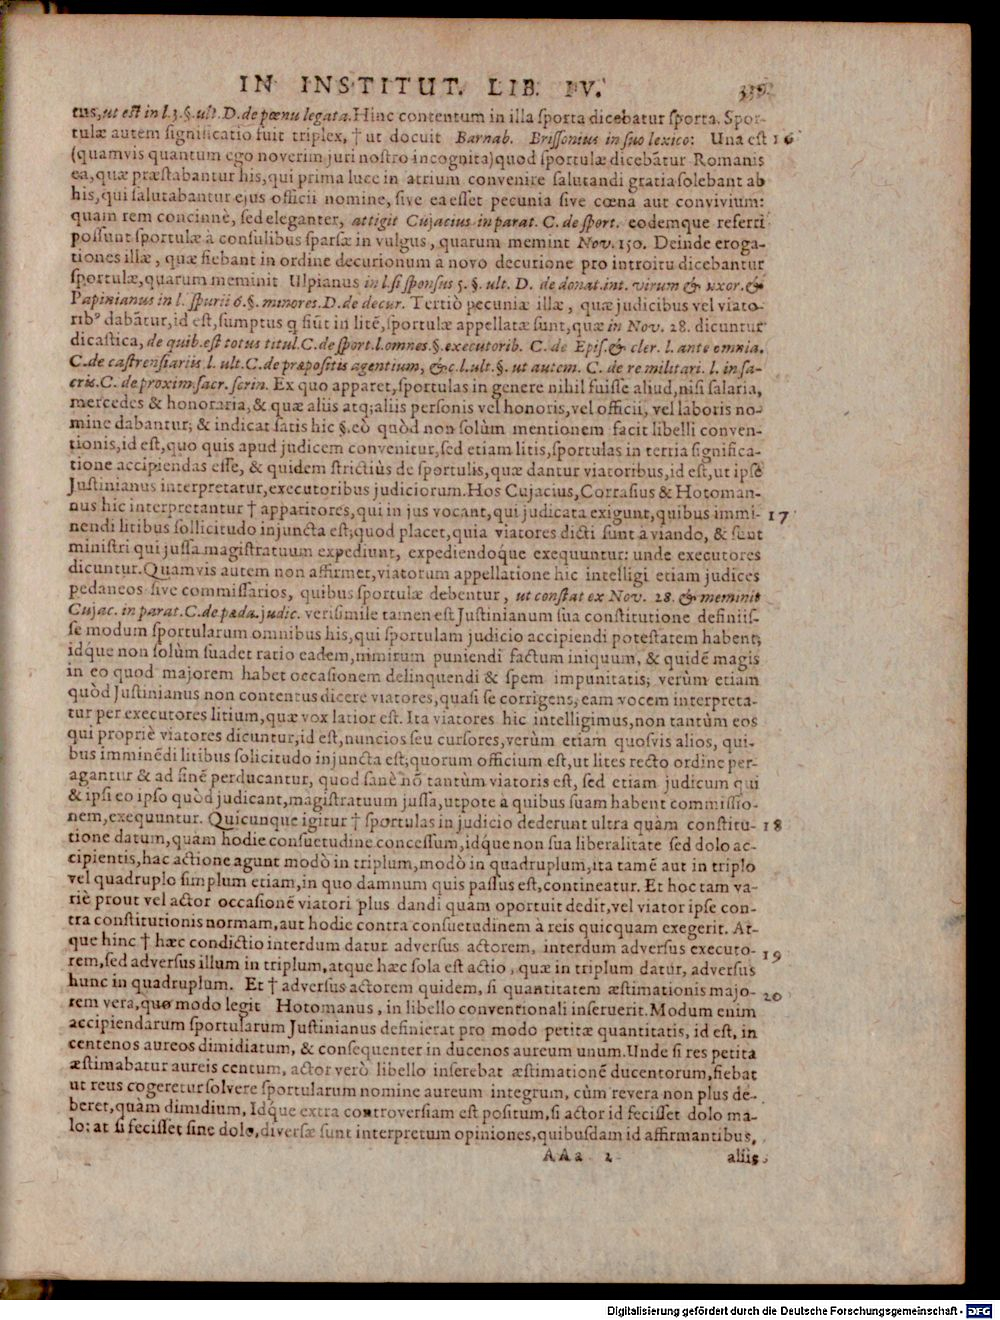 IN INSTITUT. LIB. IV.
tus, ut est in l. 3. §. ult. D. de pœnu legata. Hinc contentum in illa sporta dicebatur sporta. Spor-
tulæ autem significatio fuit triplex, † ut docuit Barnab. Brissonius in suo lexico: Una est 16
(quamvis quantum ego noverim juri nostro incognita) quod sportulæ dicebãtur Romanis
ea, quæ præstabantur his, qui prima luce in atrium convenire salutandi gratia solebant ab
his, qui salutabantur ejus officii nomine, sive ea esset pecunia sive cœna aut convivium:
quam rem concinnè, sed eleganter, attigit Cujacius in parat. C. de sport. eodemque referri
possunt sportulæ à consulibus sparsæ in vulgus, quarum memint Nov. 150. Deinde eroga-
tiones illæ, quæ fiebant in ordine decurionum à novo decurione pro introitu dicebantur
sportulæ, quarum meminit Ulpianus in l. si sponsus 5. §. ult. D. de donat. int. virum & uxor. &
Papinianus in l. spurii 6. §. minores. D. de decur. Tertiò pecuniæ illæ, quæ judicibus vel viato-
ribꝰ dabãtur, id est, sumptus q fiũt in litẽ, sportulæ appellatæ sunt, quæ in Nov. 28. dicuntur
dicastica, de quib. est totus titul. C. de sport. l. omnes. §. executorib. C. de Epis. & cler. l. ante omnia.
C. de castrensiariis l. ult. C. de præpositis agentium, &c. l. ult. §. ut autem. C. de re militari. l. in sa-
cris. C. de proxim. sacr. scrin. Ex quo apparet, sportulas in genere nihil fuisse aliud, nisi salaria,
mercedes & honoraria, & quæ aliis atq; aliis personis vel honoris, vel officii, vel laboris no-
mine dabantur; & indicat satis hic §. eò quòd non solùm mentionem facit libelli conven-
tionis, id est, quo quis apud judicem convenitur, sed etiam litis, sportulas in tertia significa-
tione accipiendas esse, & quidem strictiùs de sportulis, quæ dantur viatoribus, id est, ut ipse
Justinianus interpretatur, executoribus judiciorum. Hos Cujacius, Corrasius & Hotoman-
nus hic interpretantur † apparitores, qui in jus vocant, qui judicata exigunt, quibus immi- 17
nendi litibus sollicitudo injuncta est; quod placet, quia viatores dicti sunt à viando, & sunt
ministri qui jussa magistratuum expediunt, expediendoque exequuntur: unde executores
dicuntur. Quamvis autem non affirmet, viatorum appellatione hic intelligi etiam judices
pedaneos sive commissarios, quibus sportulæ debentur, ut constat ex Nov. 28. & meminit
Cujac. in parat. C. de pæda. judic. verisimile tamen est Justinianum sua constitutione definiis-
se modum sportularum omnibus his, qui sportulam judicio accipiendi potestatem habent;
idq́ue non solùm suadet ratio eadem, nimirum puniendi factum iniquum, & quidẽ magis
in eo quod majorem habet occasionem delinquendi & spem impunitatis; verùm etiam
quòd Justinianus non contentus dicere viatores, quasi se corrigens, eam vocem interpreta-
tur per executores litium, quæ vox latior est. Ita viatores hic intelligimus, non tantùm eos
qui propriè viatores dicuntur, id est, nuncios seu cursores, verùm etiam quosvis alios, qui-
bus imminẽdi litibus solicitudo injuncta est; quorum officium est, ut lites recto ordine per-
agantur & ad finẽ perducantur, quod sanè nõ tantùm viatoris est, sed etiam judicum qui
& ipsi eo ipso quòd judicant, magistratuum jussa, utpote à quibus suam habent commissio-
nem, exequuntur. Quicunque igitur † sportulas in judicio dederunt ultra quàm constitu- 18
tione datum, quàm hodie consuetudine concessum, idque non sua liberalitate sed dolo ac-
cipientis, hac actione agunt modò in triplum, modò in quadruplum, ita tamẽ aut in triplo
vel quadruplo simplum etiam, in quo damnum quis passus est, contineatur. Et hoc tam va-
riè prout vel actor occasionẽ viatori plus dandi quàm oportuit dedit, vel viator ipse con-
tra constitutionis normam, aut hodie contra consuetudinem à reis quicquam exegerit. At-
que hinc † hæc condictio interdum datur adversus actorem, interdum adversus executo- 19
rem, sed adversus illum in triplum, atque hæc sola est actio, quæ in triplum datur, adversus
hunc in quadruplum. Et † adversus actorem quidem, si quantitatem æstimationis majo- 20
rem vera, quo modo legit Hotomanus, in libello conventionali inseruerit. Modum enim
accipiendarum sportularum Justinianus definierat pro modo petitæ quantitatis, id est, in
centenos aureos dimidiatum, & consequenter in ducenos aureum unum. Unde si res petita
æstimabatur aureis centum, actor verò libello inserebat æstimationẽ ducentorum, fiebat
ut reus cogeretur solvere sportularum nomine aureum integrum, cùm revera non plus de-
beret, quàm dimidium, Idq́ue extra controversiam est positum, si actor id fecisset dolo ma-
lo: at si fecisset sine dolo, diversæ sunt interpretum opiniones, quibusdam id affirmantibus,
AAa 2
aliis
Digitalisierung gefördert durch die Deutsche Forschungsgemeinschaft - DFG